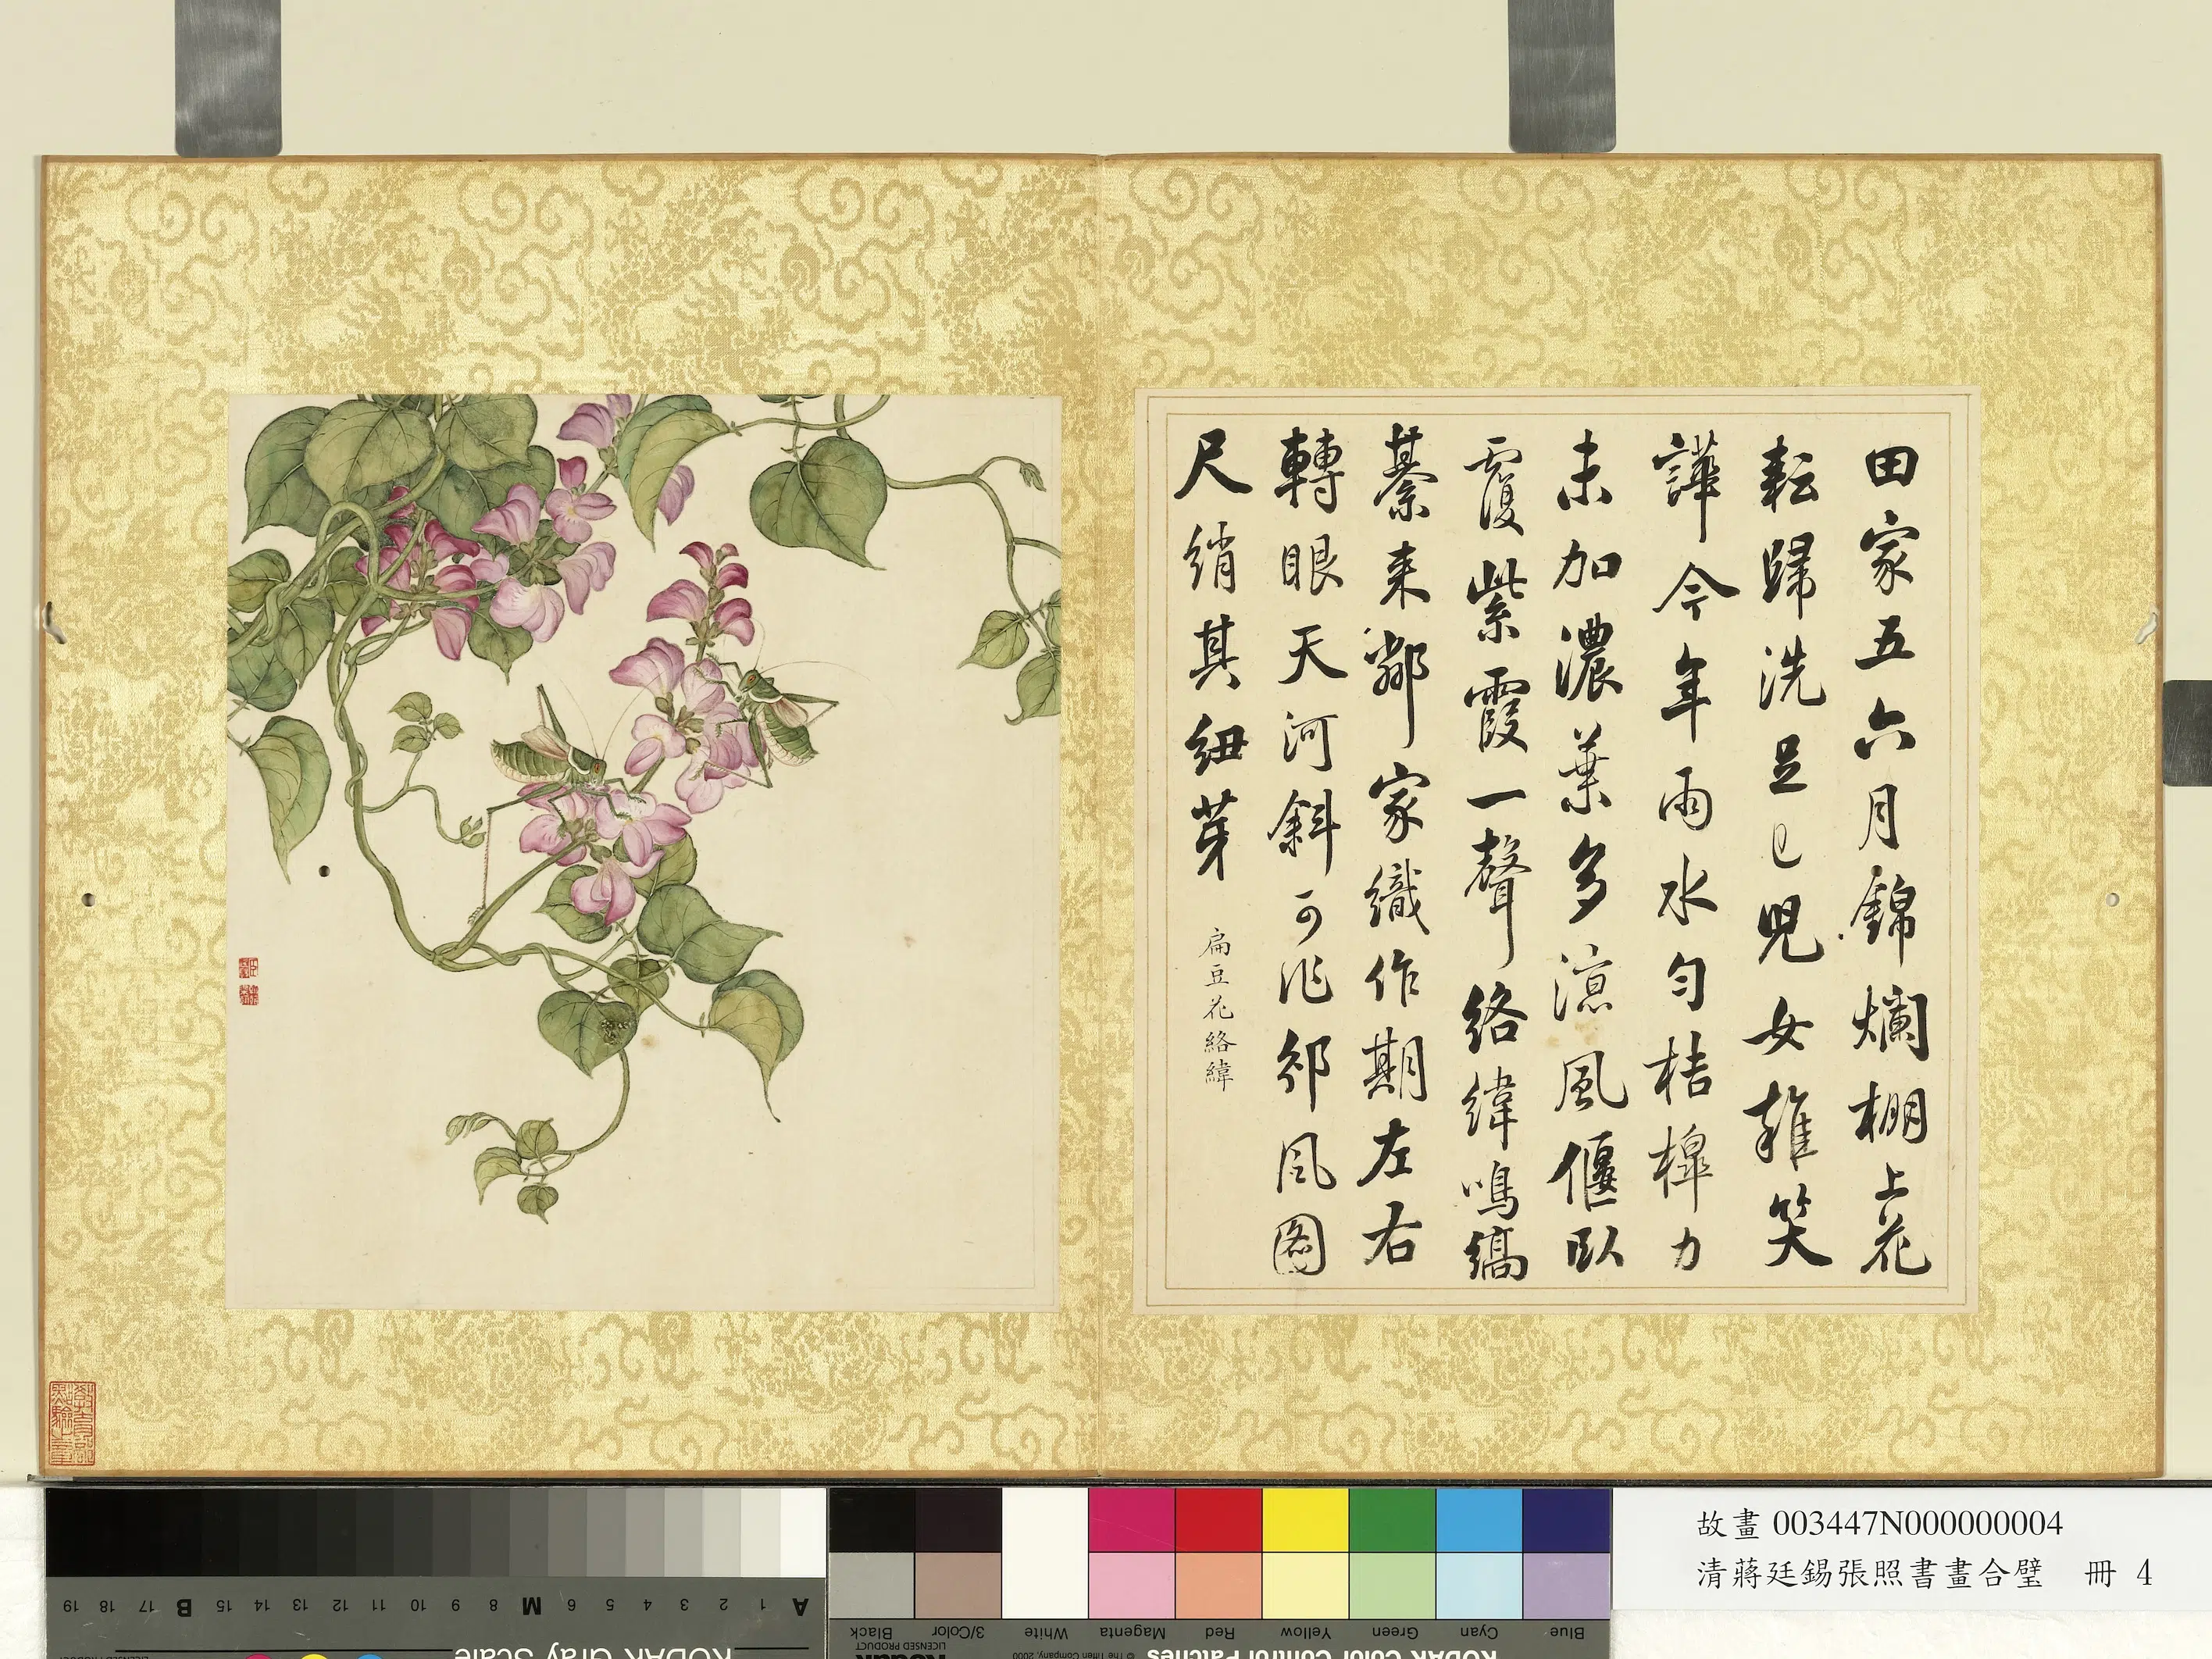 田家五六月錦爛棚上花
耘歸洗足已兒女雜笑
譁今年雨水勻桔槔力
未加濃葉多涼風偃臥
覆紫霞一聲絡緯鳴縞
綦来鄰家織作期左右
轉眼天河斜可作邠風圖
尺綃其細芽
扁豆花絡緯
故畫 003447N000000004
清蔣廷錫張照書畫合璧 冊 4
19 18 17 B 16 15 14 13 12 11 10 9 8 M 7 6 5 4 3 2 1 A
Black 3/Color White Magenta Red Yellow Green Cyan Blue
LICENSED PRODUCT
© The Tiffen Company, 2000
KODAK Gray Scale
Kodak
KODAK Color Control Patches